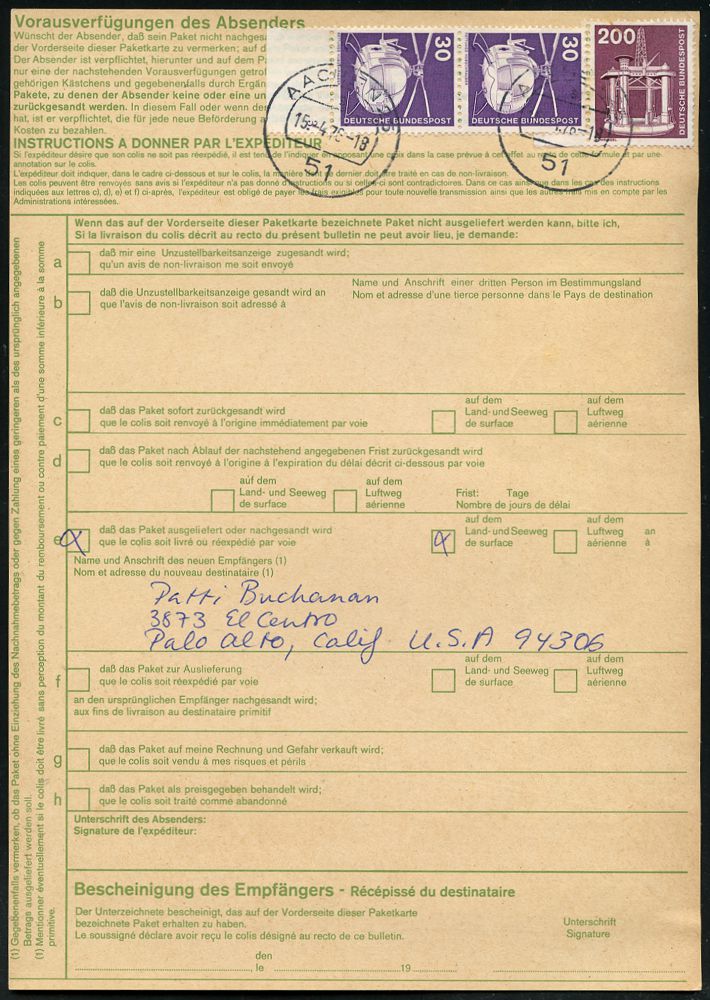 Vorausverfügungen des Absenders
Wünscht der Absender, daß sein Paket nicht nachgesa
der Vorderseite dieser Paketkarte zu vermerken; auf d
Der Absender ist verpflichtet, hierunter und auf dem Pa
nur eine der nachstehenden Vorausverfügungen getrof
gehörigen Kästchens und gegebenenfalls durch Ergän
Pakete, zu denen der Absender keine oder eine un
zurückgesandt werden. In diesem Fall oder wenn der
hat, ist er verpflichtet, die für jede neue Beförderung a
Kosten zu bezahlen.
30
DEUTSCHE BUNDESPOST
30
DEUTSCHE BUNDESPOST
200
DEUTSCHE BUNDESPOST
AACHEN
15.-4.76-18
51
51
INSTRUCTIONS A DONNER PAR L'EXPÉDITEUR
Si l'expéditeur désire que son colis ne soit pas réexpédié, il est tenu de l'indiquer en apposant une croix dans la case prévue à cet effet au recto de cette formule et par une
annotation sur le colis.
L'expéditeur doit indiquer, dans le cadre ci-dessous et sur le colis, la manière dont ce dernier doit être traité en cas de non-livraison.
Les colis peuvent être renvoyés sans avis si l'expéditeur n'a pas donné d'instructions ou si celles-ci sont contradictoires. Dans ce cas ainsi que dans les cas des instructions
indiquées aux lettres c), d), e) et f) ci-après, l'expéditeur est obligé de payer les frais exigibles pour toute nouvelle transmission ainsi que les autres frais mis en compte par les
Administrations intéressées.
Wenn das auf der Vorderseite dieser Paketkarte bezeichnete Paket nicht ausgeliefert werden kann, bitte ich,
Si la livraison du colis décrit au recto du présent bulletin ne peut avoir lieu, je demande:
a daß mir eine Unzustellbarkeitsanzeige zugesandt wird;
qu'un avis de non-livraison me soit envoyé
b daß die Unzustellbarkeitsanzeige gesandt wird an
que l'avis de non-livraison soit adressé à
Name und Anschrift einer dritten Person im Bestimmungsland
Nom et adresse d'une tierce personne dans le Pays de destination
c daß das Paket sofort zurückgesandt wird
que le colis soit renvoyé à l'origine immédiatement par voie
auf dem
Land- und Seeweg
de surface
auf dem
Luftweg
aérienne
d daß das Paket nach Ablauf der nachstehend angegebenen Frist zurückgesandt wird
que le colis soit renvoyé à l'origine à l'expiration du délai décrit ci-dessous par voie
auf dem
Land- und Seeweg
de surface
auf dem
Luftweg
aérienne
Frist: Tage
Nombre de jours de délai
e daß das Paket ausgeliefert oder nachgesandt wird
que le colis soit livré ou réexpédié par voie
X
X
auf dem
Land- und Seeweg
de surface
auf dem
Luftweg
aérienne
an
à
Name und Anschrift des neuen Empfängers (1)
Nom et adresse du nouveau destinataire (1)
Patti Buchanan
3873 El Centro
Palo Alto, Calif U.S.A 94306
f daß das Paket zur Auslieferung
que le colis soit réexpédié par voie
auf dem
Land- und Seeweg
de surface
auf dem
Luftweg
aérienne
an den ursprünglichen Empfänger nachgesandt wird;
aux fins de livraison au destinataire primitif
g daß das Paket auf meine Rechnung und Gefahr verkauft wird;
que le colis soit vendu à mes risques et périls
h daß das Paket als preisgegeben behandelt wird;
que le colis soit traité comme abandonné
Unterschrift des Absenders:
Signature de l'expéditeur:
Bescheinigung des Empfängers - Récépissé du destinataire
Der Unterzeichnete bescheinigt, das auf der Vorderseite dieser Paketkarte
bezeichnete Paket erhalten zu haben.
Le soussigné déclare avoir reçu le colis désigné au recto de ce bulletin.
Unterschrift
Signature
den
, le 19
(1) Gegebenenfalls vermerken, ob das Paket ohne Einziehung des Nachnahmebetrags oder gegen Zahlung eines geringeren als des ursprünglich angegebenen
Betrags ausgeliefert werden soll.
(1) Mentionner éventuellement si le colis doit être livré sans perception du montant du remboursement ou contre paiement d'une somme inférieure à la somme
primitive.